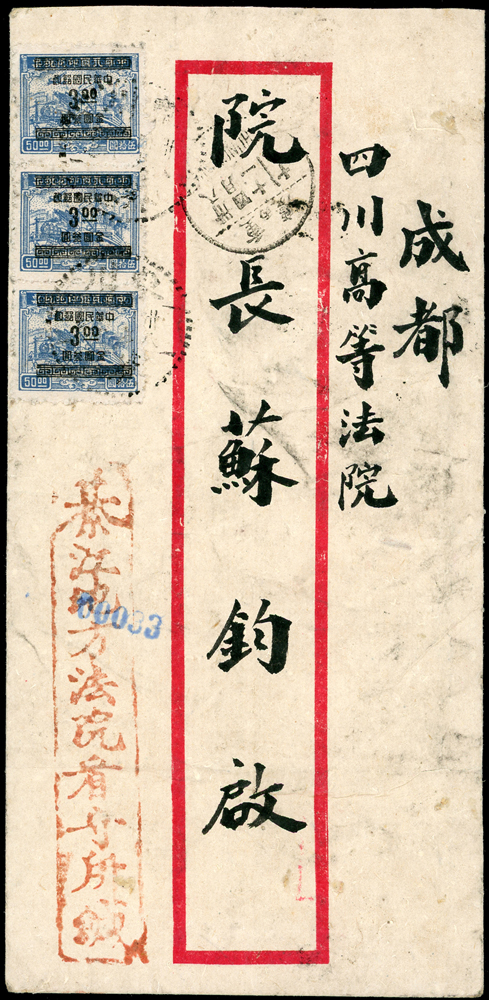 成都
四川高等法院
院長蘇鈞啟
綦江地方法院看守所緘
00033
中華民國郵政
3.00
金圓叁圓
50.00
伍拾圓
中華民國郵政
3.00
金圓叁圓
50.00
伍拾圓
中華民國郵政
3.00
金圓叁圓
50.00
伍拾圓